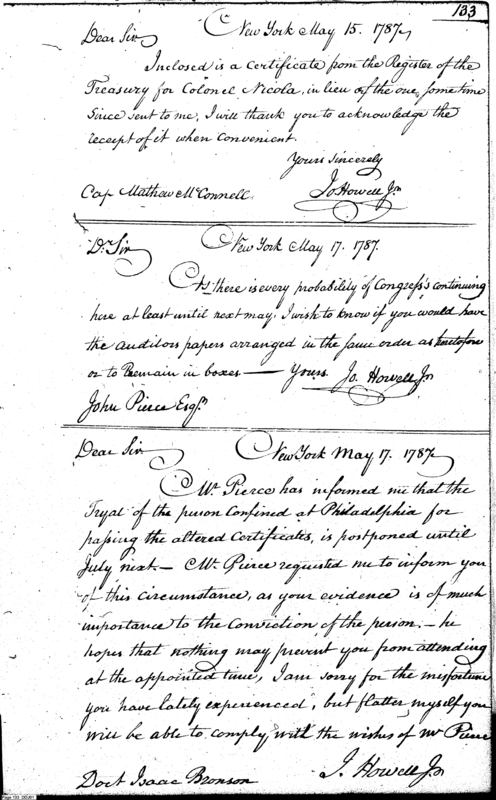 133
New York May 15. 1787.
Dear Sir
Inclosed is a Certificate from the Register of the
Treasury for Colonel Nicola, in lieu of the one, sometime
Since sent to me, I will thank you to acknowledge the
receipt of it when convenient.
Yours sincerely
Jo Howell Jr
Cap Mathew McConnell
New York May 17. 1787.
Dr Sir
As there is every probability of Congress's continuing
here at least until next may. I wish to know if you would have
the auditors papers arranged in the same order as heretofore
or to Remain in boxes — Yours. Jo. Howell Jr
John Pierce Esqr.
New York May 17. 1787
Dear Sir
Mr. Pierce has informed me that the
Tryal of the person Confined at Philadelphia for
passing the altered Certificates, is postponed until
July next — Mr. Pierce requested me to inform you
of this Circumstance, as your evidence is of much
importance to the Conviction of the person: — he
hopes that nothing may prevent you from attending
at the appointed time, I am sorry for the misfortune
you have lately experienced, but flatter myself you
will be able to comply with the wishes of Mr Pierce
J. Howell Jr
Doct Isaac Bronson